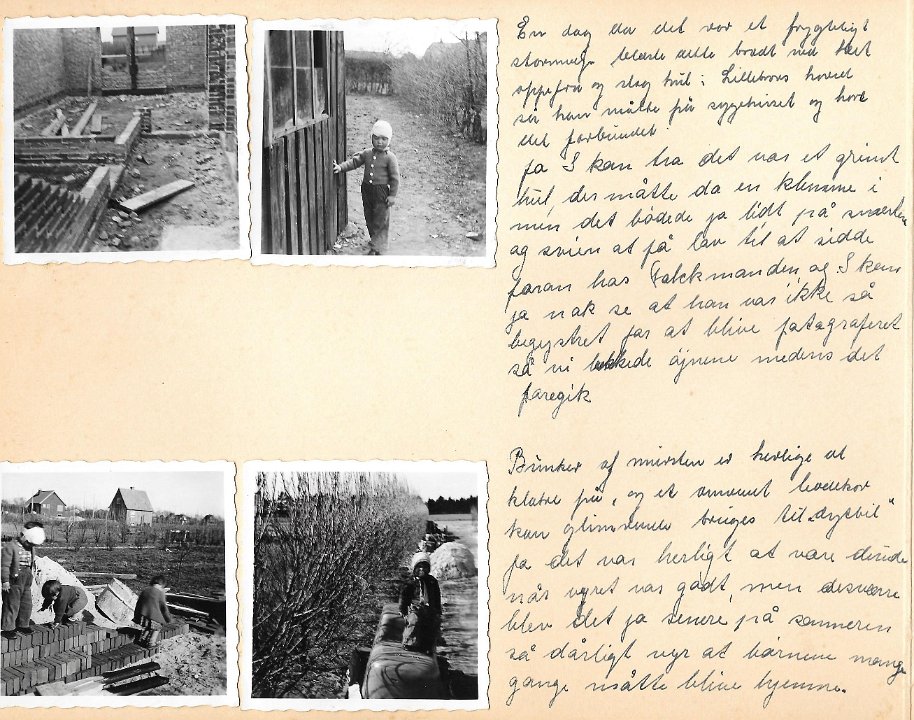 En dag da det var et frygteligt
stormvejr blæste dette brædt ned tæt
oppefra og slog hul i Lillebrors hoved
så han måtte på sygehuset og have
det forbundet.
Ja I kan tro det var et grimt
hul, der måtte da en klemme i
men det bødede jo lidt på smerten
og svien at få lov til at sidde
foran hos Falckmanden, og I kan
jo nok se at han var ikke så
begejstret for at blive fotograferet
så vi lukkede øjnene medens det
foregik
Bunker af mursten er herlige at
klatre på, og et omvendt badekar
kan glimrende bruges til "dytbil"
Ja det var herligt at være derude
når vejret var godt, men desværre
blev det jo senere på sommeren
så dårligt vejr at børnene mange
gange måtte blive hjemme.